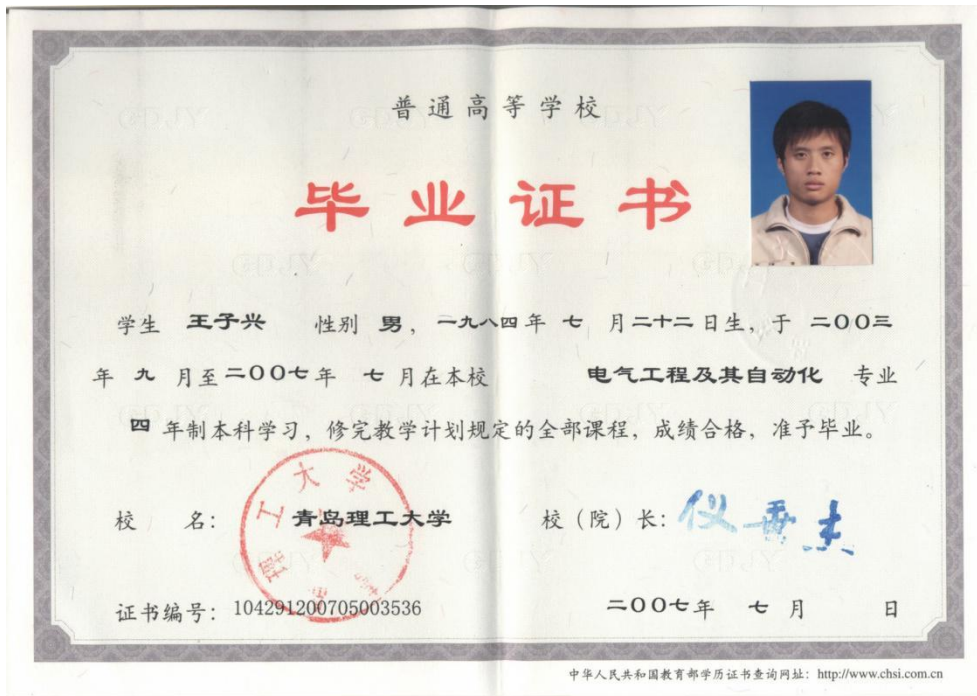 普通高等学校
毕业证书
学生 王子兴 性别 男，一九八四年 七 月二十二日生，于 二００三
年 九 月至二００七年 七月在本校 电气工程及其自动化 专业
四 年制本科学习，修完教学计划规定的全部课程，成绩合格，准予毕业。
校 名：青岛理工大学 校（院）长：仪垂杰
理工大学
证书编号：104291200705003536 二００七年 七 月 日
中华人民共和国教育部学历证书查询网址：http://www.chsi.com.cn